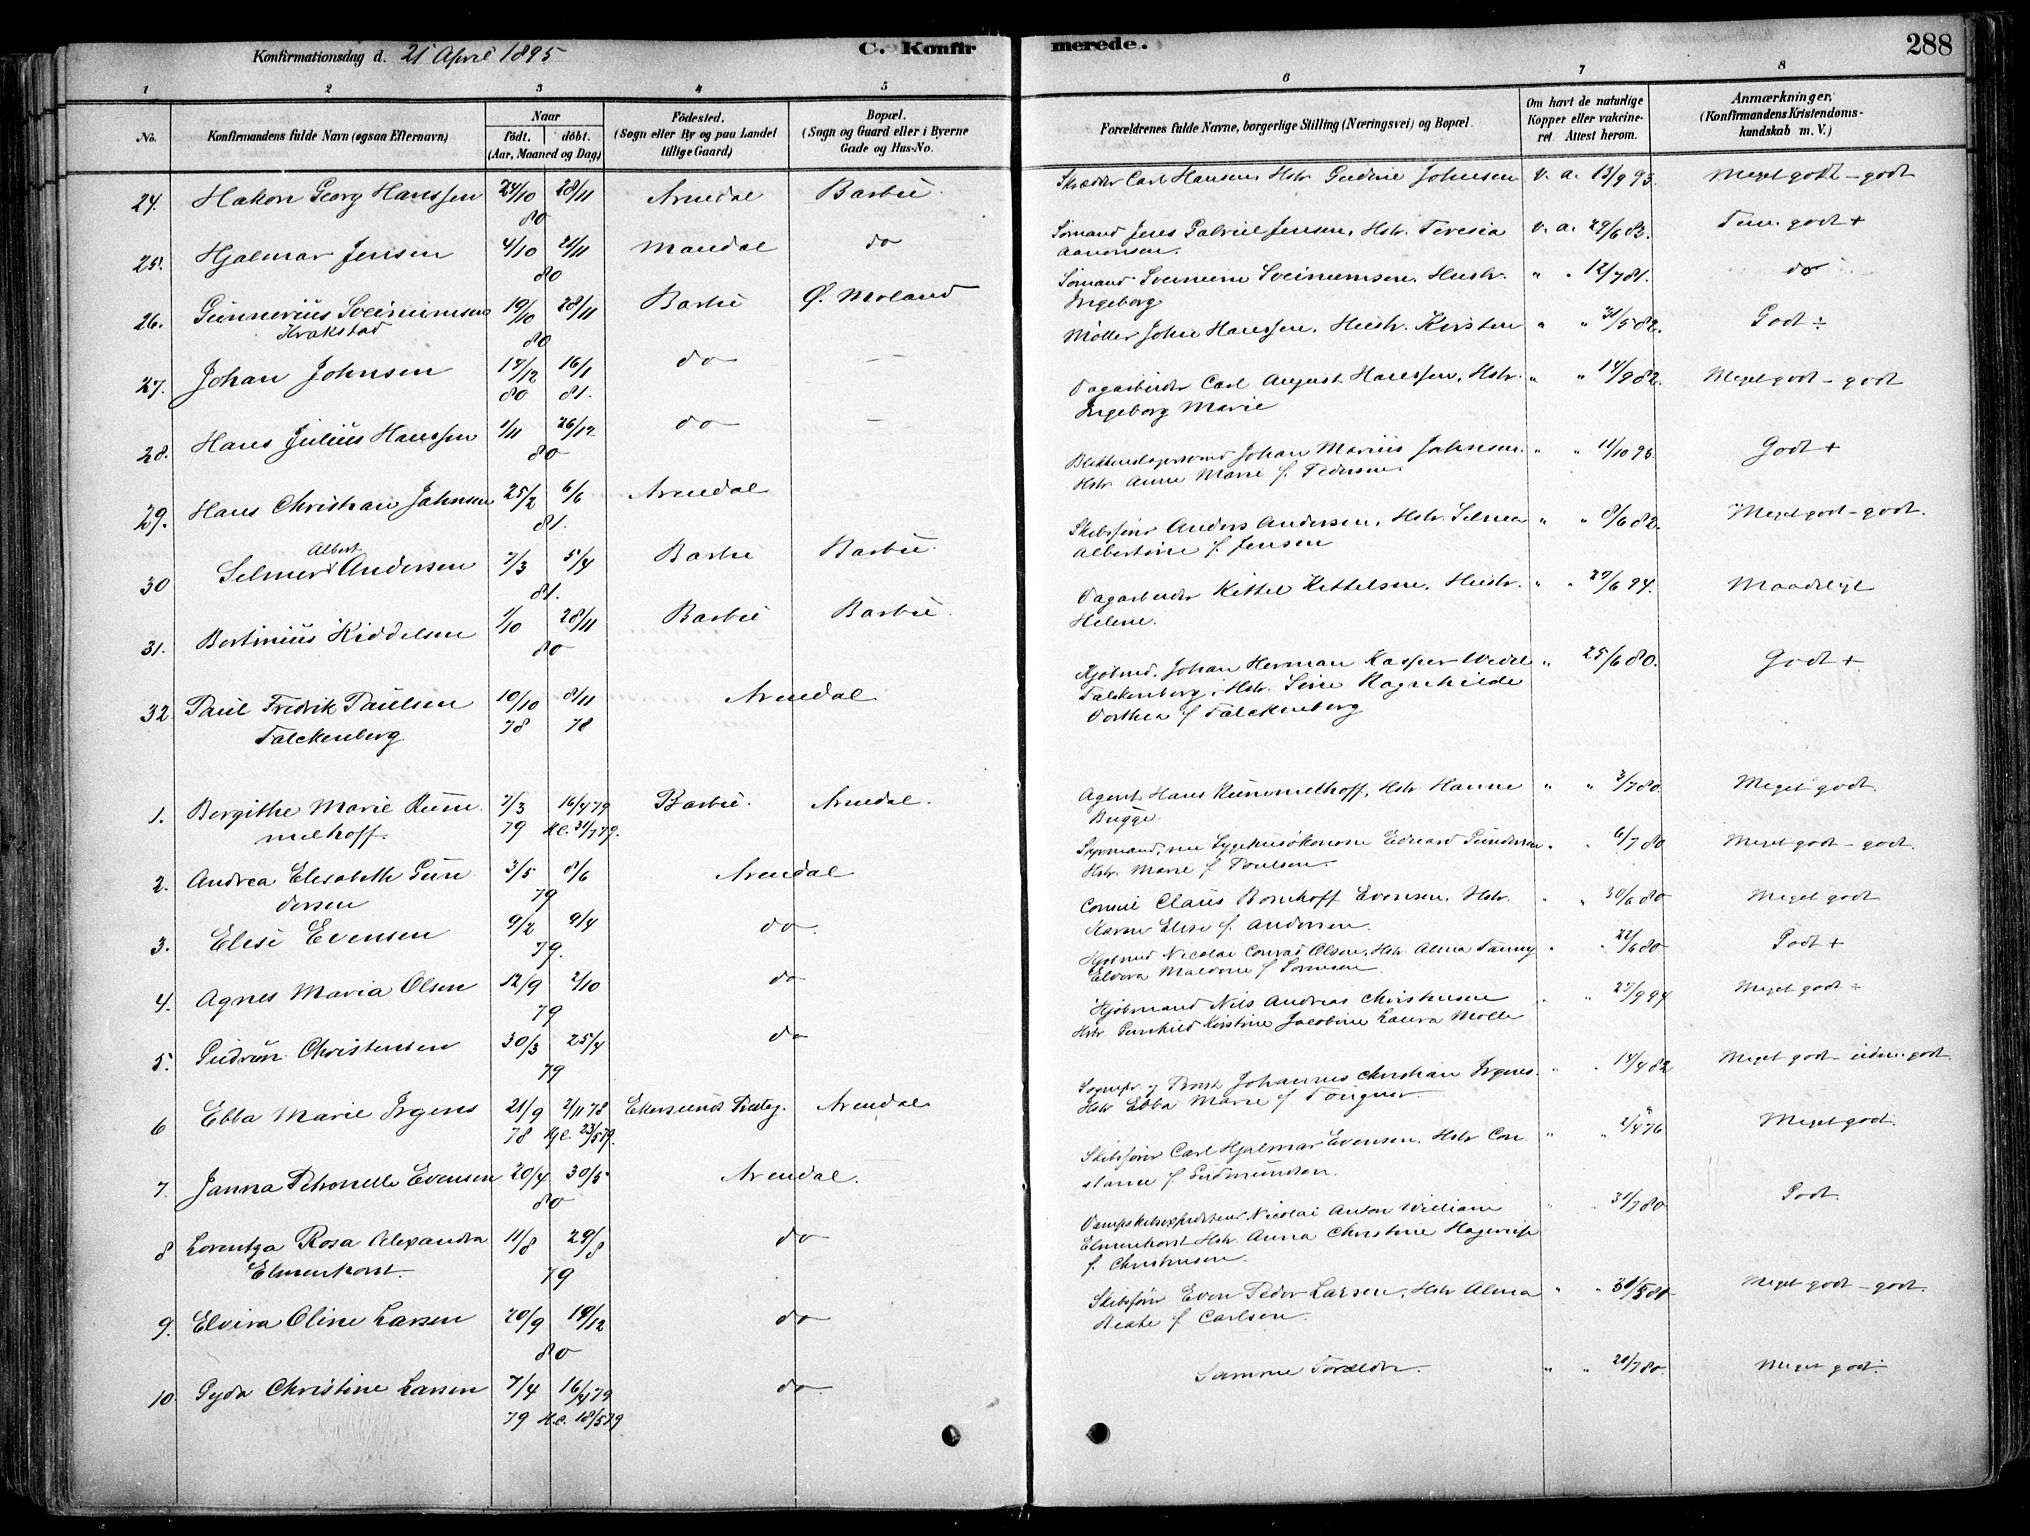 Konfirmationsdag d. 21 April 1895
C. Konfirmerede.
288
1 2 3 4 5 6 7 8
No.
Konfirmandens fulde Navn (ogsaa Efternavn)
Naar
født. døbt.
(Aar, Maaned og Dag)
Fødested.
(Sogn eller By og paa Landet
tillige Gaard)
Bopæl.
(Sogn og Gaard eller i Byerne
Gade og Hus-No.
Forældrenes fulde Navne, borgerlige Stilling (Næringsvei) og Bopæl.
Om havt de naturlige
Kopper eller vakcine-
ret Attest herom.
Anmærkninger.
(Konfirmandens Kristendoms-
kundskab m. V.)
24. Hakon Georg Hanssen 24/10 28/11 Arendal Barbu. Skrædder Carl Hansen, Hstr. Gudine Johnsen v. a. 13/9 93. Meget godt - godt
80
25. Hjalmar Jensen 4/10 21/11 Mandal do Sømand Jens Gabriel Jensen, Hstr. Teresia v. a. 29/6 83. Tem. godt +
80 Aanonsen.
26. Gunnerius Sveinumsen 19/10 28/11 Barbu Ø. Moland Sømand Sveinum Sveinumsen, Hustr. " " 12/7 81. do
Krokstad 80 Ingeborg
27. Johan Johnsen 17/12 16/1 do — Møller John Hanssen, Hustr. Kirsten " " 31/5 82. Godt ÷
80 81.
28. Hans Julius Hanssen 1/11 26/12 do — Dagarbeider Carl August Hanssen, Hstr. " " 14/9 82. Meget godt - godt
80 Ingeborg Marie
29. Hans Christian Johnsen 25/2 6/6 Arendal Blikkenslagersvend Johan Marius Johnsen. " " 11/10 93. Godt +
81. Hstr. Anne Marie f. Pedersen.
30 Selmer Albert Andersen 7/3 5/4 Barbu Barbu. Skibsfører Anders Andersen, Hstr. Selmea " " 8/6 82. Meget godt - godt.
81. Albertine f. Jensen
31. Bertinius Kiddelsen 1/10 28/11 Barbu Barbu. Dagarbeider Kittel Kittelsen, Hustr. " " 29/6 94. Maadeligt
80 Helene.
32. Paul Fredrik Paulsen 10/10 8/11 Arendal Kjøbmd. Johan Herman Kasper Wedel " 25/6 80. Godt +
Falckenberg 78 78 Falckenberg, Hstr. Sine Ragnhilde
Dorthea f. Falckenberg
1. Bergithe Marie Rum 7/3 16/4 79 Barbu. Arendal. Agent Hans Rummelhoff, Hstr Hanne " " 3/7 80 Meget godt.
melhoff. 79 K.C. 31/7 79. Bugge.
2. Andrea Elisabeth Gun 3/5 8/6 Arendal Eduard Gundersen " " 6/7 80 Meget godt - godt.
dersen 79 Hstr. Marie f. Poulsen.
3. Elise Evensen 9/2 9/4 do. Consul Claus Bomhoff Evensen, Hstr. " " 30/6 80 Meget godt
79. Karen Elise f. Andersen.
4. Agnes Maria Olsen 12/9 2/10 do Nicolai Conrad Olsen, Hstr. Alma Fanny " " 22/6 80 Godt +
79 Elvira Maldvine f. Sørensen
5. Gudrun Christensen 30/3 25/4 do Kjøbmand Nils Andreas Christensen " " 27/9 94 Meget godt ÷
79 Hstr Gunhild Kirstine Jacobine Laura Molle
6 Ebba Marie Irgens 21/9 2/11 78 Ekersunds Præstg. Arendal Sognepr. og Provst Johannes Christian Irgens. " " 14/4 82 Meget godt - udm. godt
78 Kjc. 23/5 79. Hstr Ebba Marie f. Tougner.
7. Janna Petronelle Evensen 20/4 30/5 Arendal. Skibsfører Carl Hjalmar Evensen, Hstr Con " " 2/4 76 Meget godt.
80 stance f. Gudmundsen.
8 Lorentza Rosa Alexandra 11/8 29/8 do Dampskibsexpeditør Nicolai Anton William " " 31/7 80 Godt.
Elmenhorst. 79 Elmenhorst Hstr. Anna Christine
f. Christensen.
9. Elvira Oline Larsen 20/9 19/12 do Skibsfører Even Peder Larsen, Hstr Alma " " 31/5 81 Meget godt - godt.
80 Beate f. Carlsen.
10. Gyda Christine Larsen 7/4 16/4 79 do. Samme Forældre. " " 20/7 80. Meget godt.
79 K.C. 18/5 79